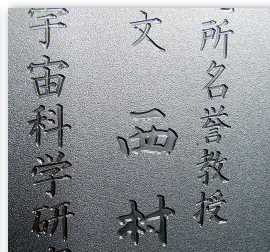 所名誉教授
文　西村
宇宙科学研